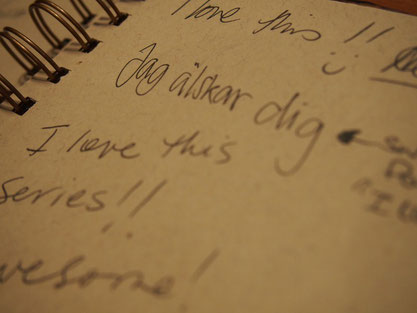 I love this!!
Jag älskar dig
I love this
series!!
wesome!